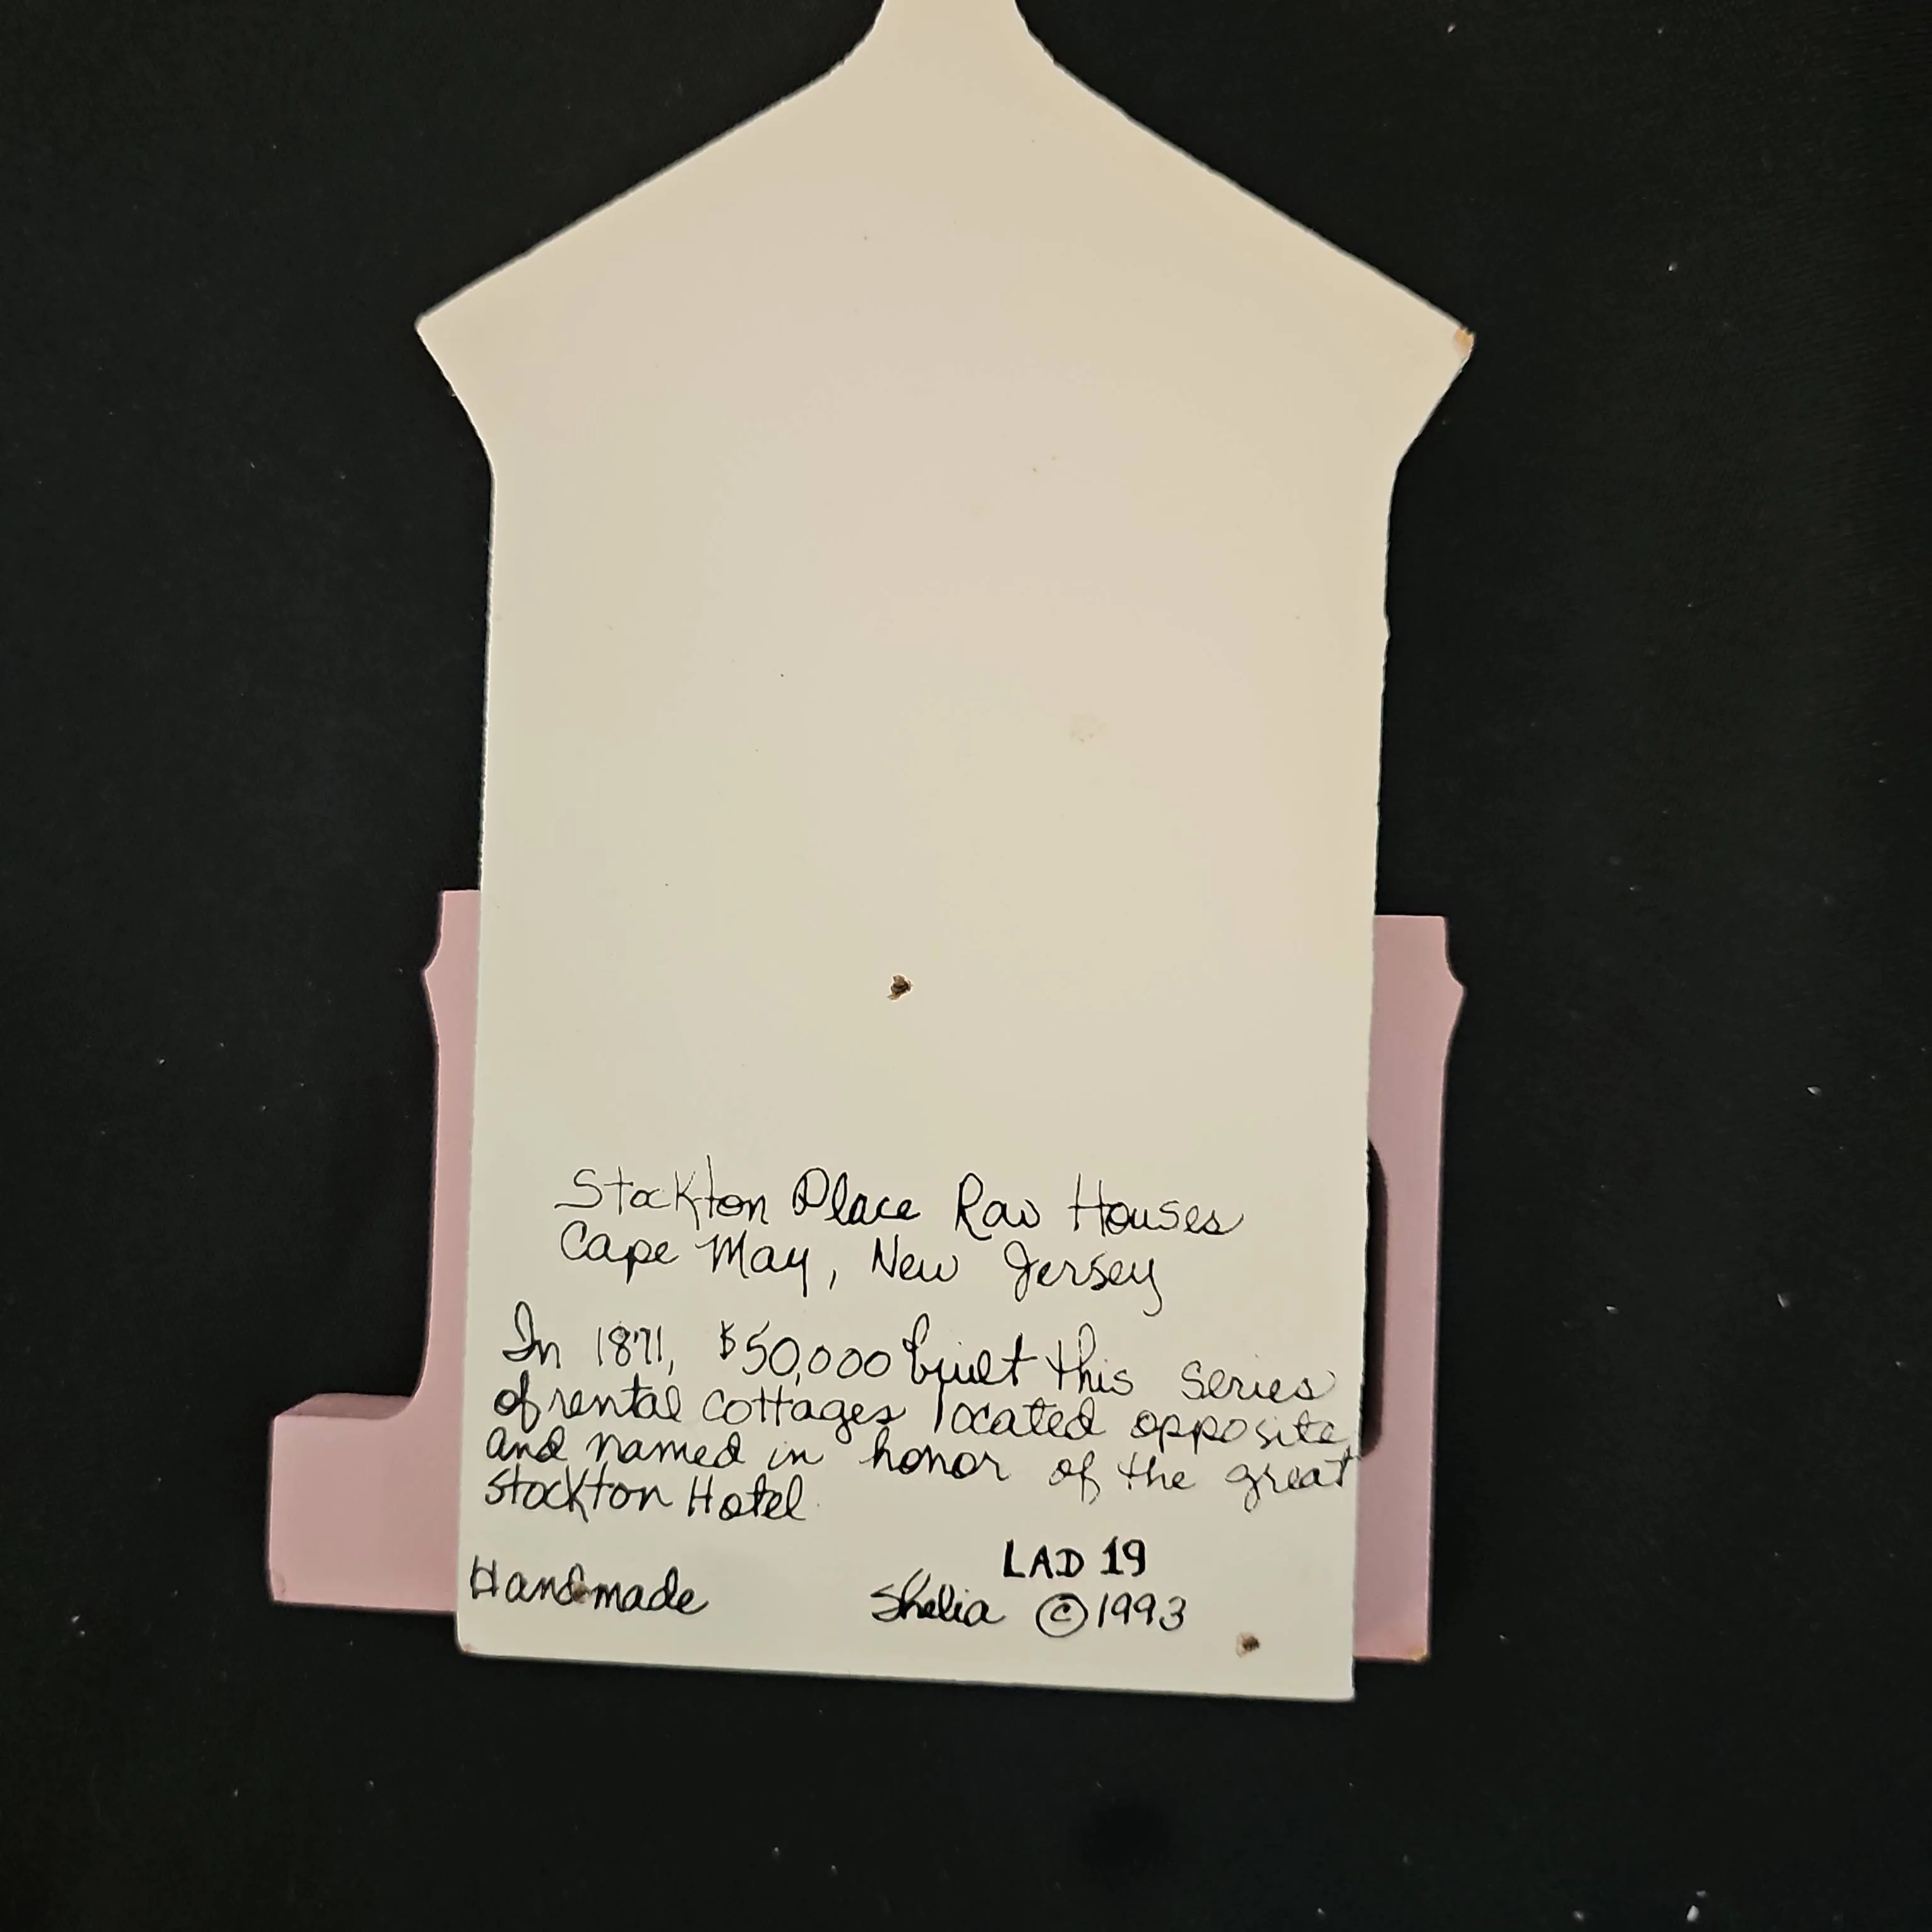 Stockton Place Row Houses
Cape May, New Jersey
In 1871, $50,000 built this series
of rental cottages located opposite
and named in honor of the great
Stockton Hotel.
LAD 19
Handmade Shelia © 1993